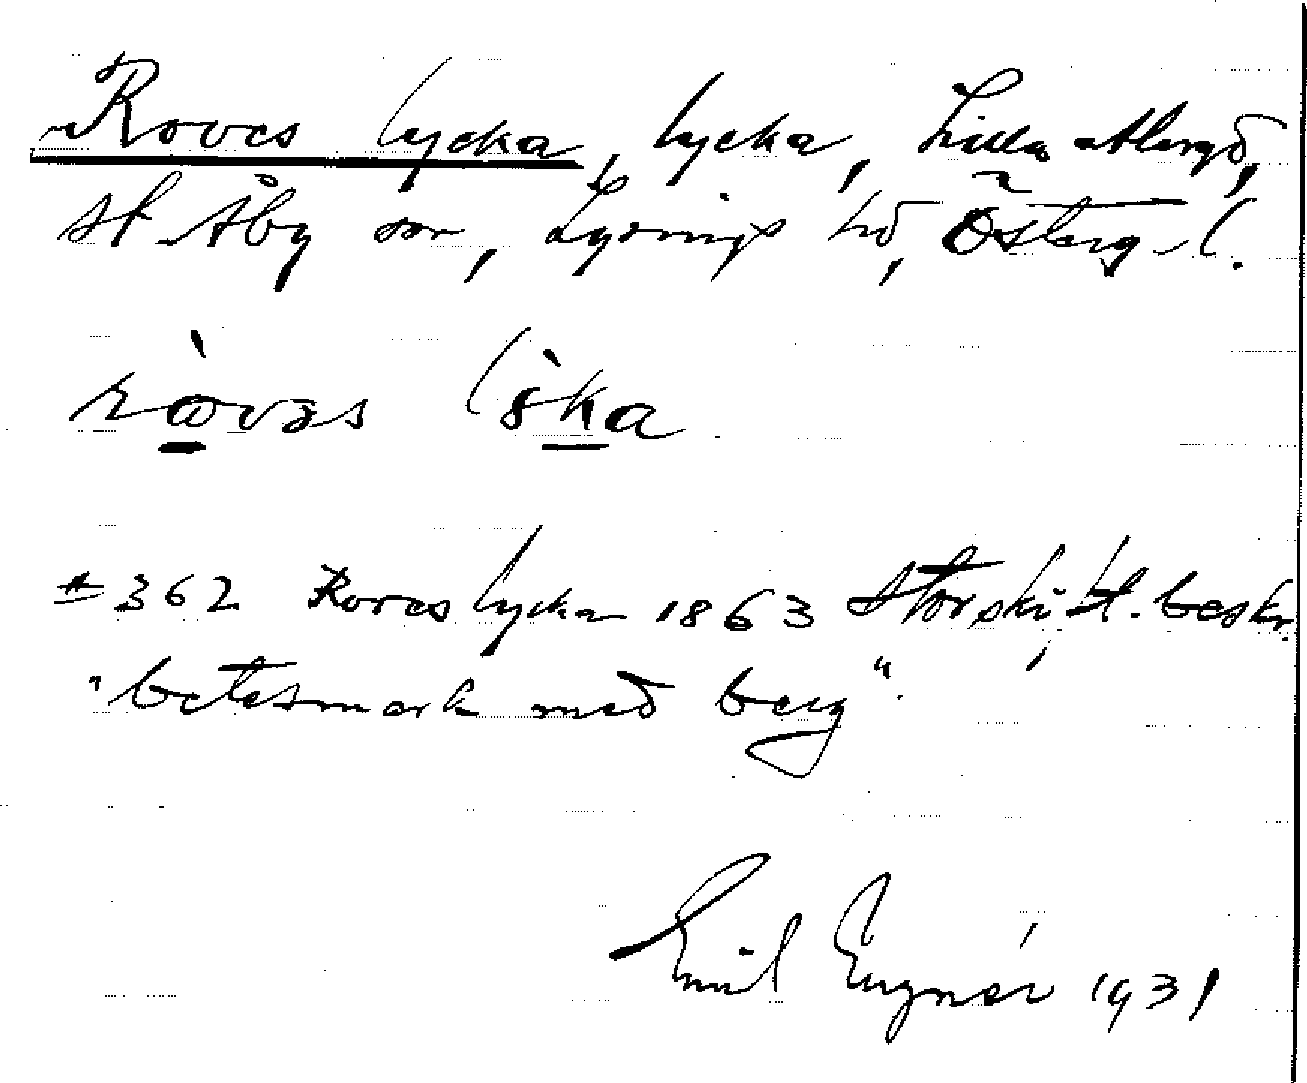 Roves lycka, lycka, Lilla Abergd,
St Åby sn, Lysings hd, Österg. l.
# 362 Roves lycka 1863 Storski, St. beskr.
"betesmark med berg".
Emil Engnér 1931